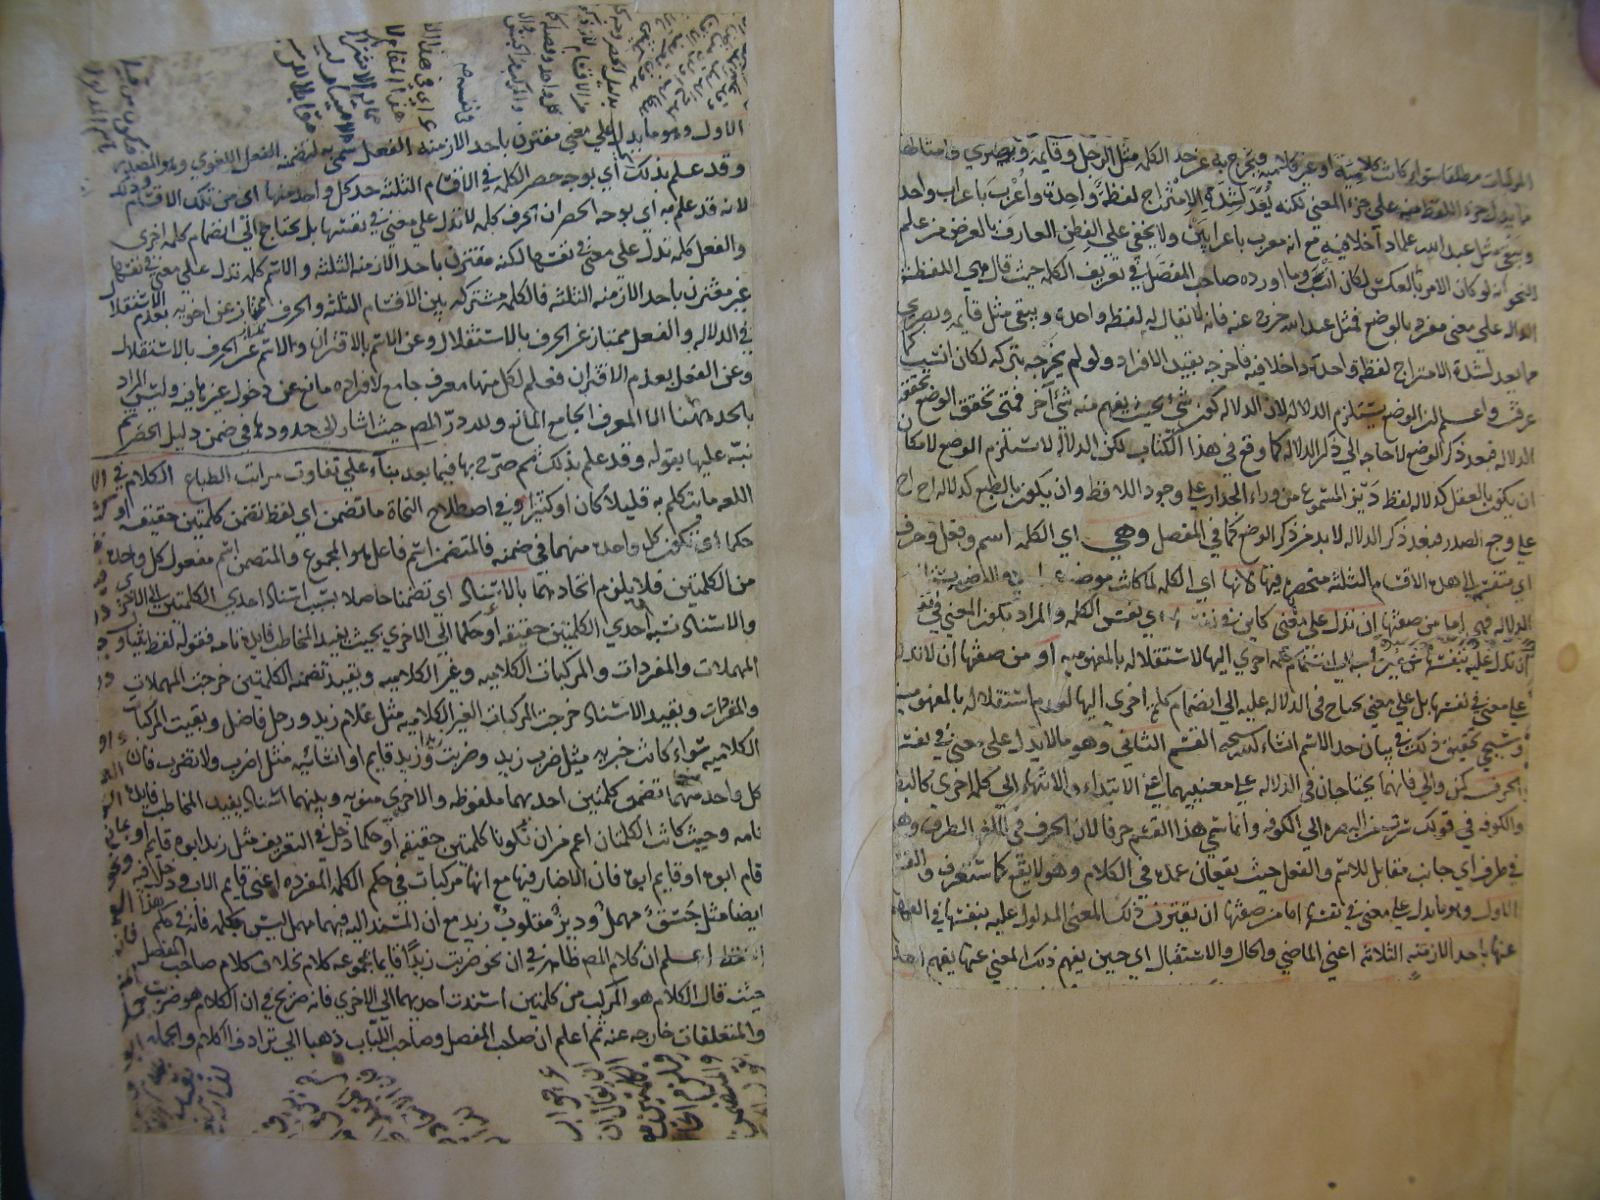 المركبات مطلقا سواء كانت كلامية او غير كلامية ويخرج به عن حد الكلمة مثل الرجل وقايمة وبصري وامثالها
مما يدل جزء اللفظ منه على جزء المعنى لكنه يعد لشدة الامتزاج لفظة واحدة واعرب باعراب واحد
وبقي مثل عبد الله علما داخلا فيه مع انه معرب باعرابين ولا يخفى على الفطن العارف بالغرض من علم
النحو انه لو كان الامر بالعكس لكان انسب وما اورده صاحب المفصل في تعريف الكلمة حيث قال هي اللفظة
الدالة على معنى مفرد بالوضع فمثل عبد الله خرج عنه فانه لا يقال له لفظة واحدة وبقي مثل قايمة وبصري
مما يعد لشدة الامتزاج لفظة واحدة داخلا فيه فاخرجه بقيد الافراد ولو لم يخرجه بتركه لكان انسب كما
عرفت واعلم ان الوضع يستلزم الدلالة لان الدلالة كون شئ بحيث يفهم منه شئ آخر فمتى تحقق الوضع تحققت
الدلالة فبعد ذكر الوضع لا حاجة الى ذكر الدلالة كما وقع في هذا الكتاب لكن الدلالة لا تستلزم الوضع لامكان
ان يكون بالعقل كدلالة لفظ ديز المسموع من وراء الجدار على وجود اللافظ وان يكون بالطبع كدلالة اح اح
على وجع الصدر فبعد ذكر الدلالة لا بد من ذكر الوضع كما في المفصل وهي اي الكلمة اسم وفعل وحرف
اي منقسمة الى هذه الاقسام الثلثة منحصرة فيها لانها اي الكلمة لما كانت موضوعة
الدلالة فهي اما من صفتها ان تدل على معنى كاين في نفسها اي نفس الكلمة والمراد بكون المعنى في نفسها
ان تدل عليه بنفسها من غير حاجة الى انضمام كلمة اخرى اليها لاستقلاله بالمفهومية او من صفتها ان لا تدل
على معنى في نفسها بل على معنى يحتاج في الدلالة عليه الى انضمام كلمة اخرى اليها لعدم استقلاله بالمفهومية
وسيجئ تحقيق ذلك في بيان حد الاسم انشاء الله سبحانه القسم الثاني وهو ما لا يدل على معنى في نفسها
الحرف كمن والى فانهما يحتاجان في الدلالة على معنييهما اعني الابتداء والانتهاء الى كلمة اخرى كالبصرة
والكوفة في قولك سرت من البصرة الى الكوفة وانما سمي هذا القسم حرفا لان الحرف في اللغة الطرف وهو
في طرف اي جانب مقابل للاسم والفعل حيث يقعان عمدة في الكلام وهو لا يقع كما ستعرف والقسم
الاول وهو ما يدل على معنى في نفسها اما من صفتها ان يقترن ذلك المعنى المدلول عليه بنفسها في الفهم
عنها باحد الازمنة الثلاثة اعني الماضي والحال والاستقبال اي حين يفهم ذلك المعنى عنها يفهم احد
الاول وهو ما يدل على معنى مقترن باحد الازمنة الفعل سمي به لتضمنه الفعل اللغوي وهو المصدر
وقد علم بذلك اي بوجه حصر الكلمة في الاقسام الثلثة حد كل واحد منها اي من تلك الاقسام وذلك
لانه قد علم به اي بوجه الحصر ان الحرف كلمة لا تدل على معنى في نفسها بل تحتاج الى انضمام كلمة اخرى
والفعل كلمة تدل على معنى في نفسها لكنه مقترن باحد الازمنة الثلثة والاسم كلمة تدل على معنى في نفسها
غير مقترن باحد الازمنة الثلثة فالكلمة مشتركة بين الاقسام الثلثة والحرف ممتاز عن اخويه بعدم الاستقلال
في الدلالة والفعل ممتاز عن الحرف بالاستقلال وعن الاسم بالاقتران والاسم ممتاز عن الحرف بالاستقلال
وعن الفعل بعدم الاقتران فعلم لكل منها معرف جامع لافراده مانع عن دخول غيرها فيه وليس المراد
بالحد ههنا الا المعرف الجامع المانع ولله در المص حيث اشار الى حدودها في ضمن دليل الحصر ثم
نبه عليها بقوله وقد علم بذلك ثم صرح بها فيما بعد بناء على تفاوت مراتب الطباع الكلام في
اللغة ما يتكلم به قليلا كان او كثيرا وفي اصطلاح النحاة ما تضمن اي لفظ تضمن كلمتين حقيقة او
حكما اي تكون كل واحدة منهما في ضمنه فالمتضمن اسم فاعل هو المجموع والمتضمن اسم مفعول كل واحدة
من الكلمتين فلا يلزم اتحادهما بالاسناد اي تضمنا حاصلا بسبب اسناد احدى الكلمتين الى الاخرى
والاسناد نسبة احدى الكلمتين حقيقة او حكما الى الاخرى بحيث يفيد المخاطب فايدة تامة فقوله لفظ يتناول
المهملات والمفردات والمركبات الكلامية وغير الكلامية وبقيد تضمنه الكلمتين خرجت المهملات
والمفردات وبقيد الاسناد خرجت المركبات الغير الكلامية مثل غلام زيد ورجل فاضل وبقيت المركبات
الكلامية سواء كانت خبرية مثل ضرب زيد وضربت وزيد قايم او انشائية مثل اضرب ولا تضرب فان
كل واحد منهما تضمن كلمتين احدهما ملفوظة والاخرى منوية وبينهما اسناد يفيد المخاطب فايدة
تامة وحيث كانت الكلمتان اعم من ان تكونا كلمتين حقيقة او حكما دخل في التعريف مثل زيد ابوه قايم او
قام ابوه او قايم ابوه فان الاخبار فيها مع انها مركبات في حكم الكلمة المفردة اعني قايم الاب ودخل فيه
ايضا مثل جسق مهمل وديز مقلوب زيد مع ان المسند اليه فيهما مهمل ليس بكلمة فانه في حكم
هذا اللفظ اعلم ان كلام المص ظاهر في ان نحو ضربت زيدا قايما بمجموعه كلام بخلاف كلام صاحب المفصل
حيث قال الكلام هو المركب من كلمتين اسندت احديهما الى الاخرى فانه صريح في ان الكلام هو ضربت
والمتعلقات خارجة عنه ثم اعلم ان صاحب المفصل وصاحب اللباب ذهبا الى ترادف الكلام والجملة